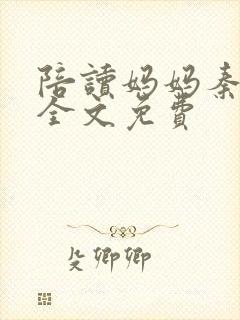 陪讀媽媽秦
全文免費
殳卿卿